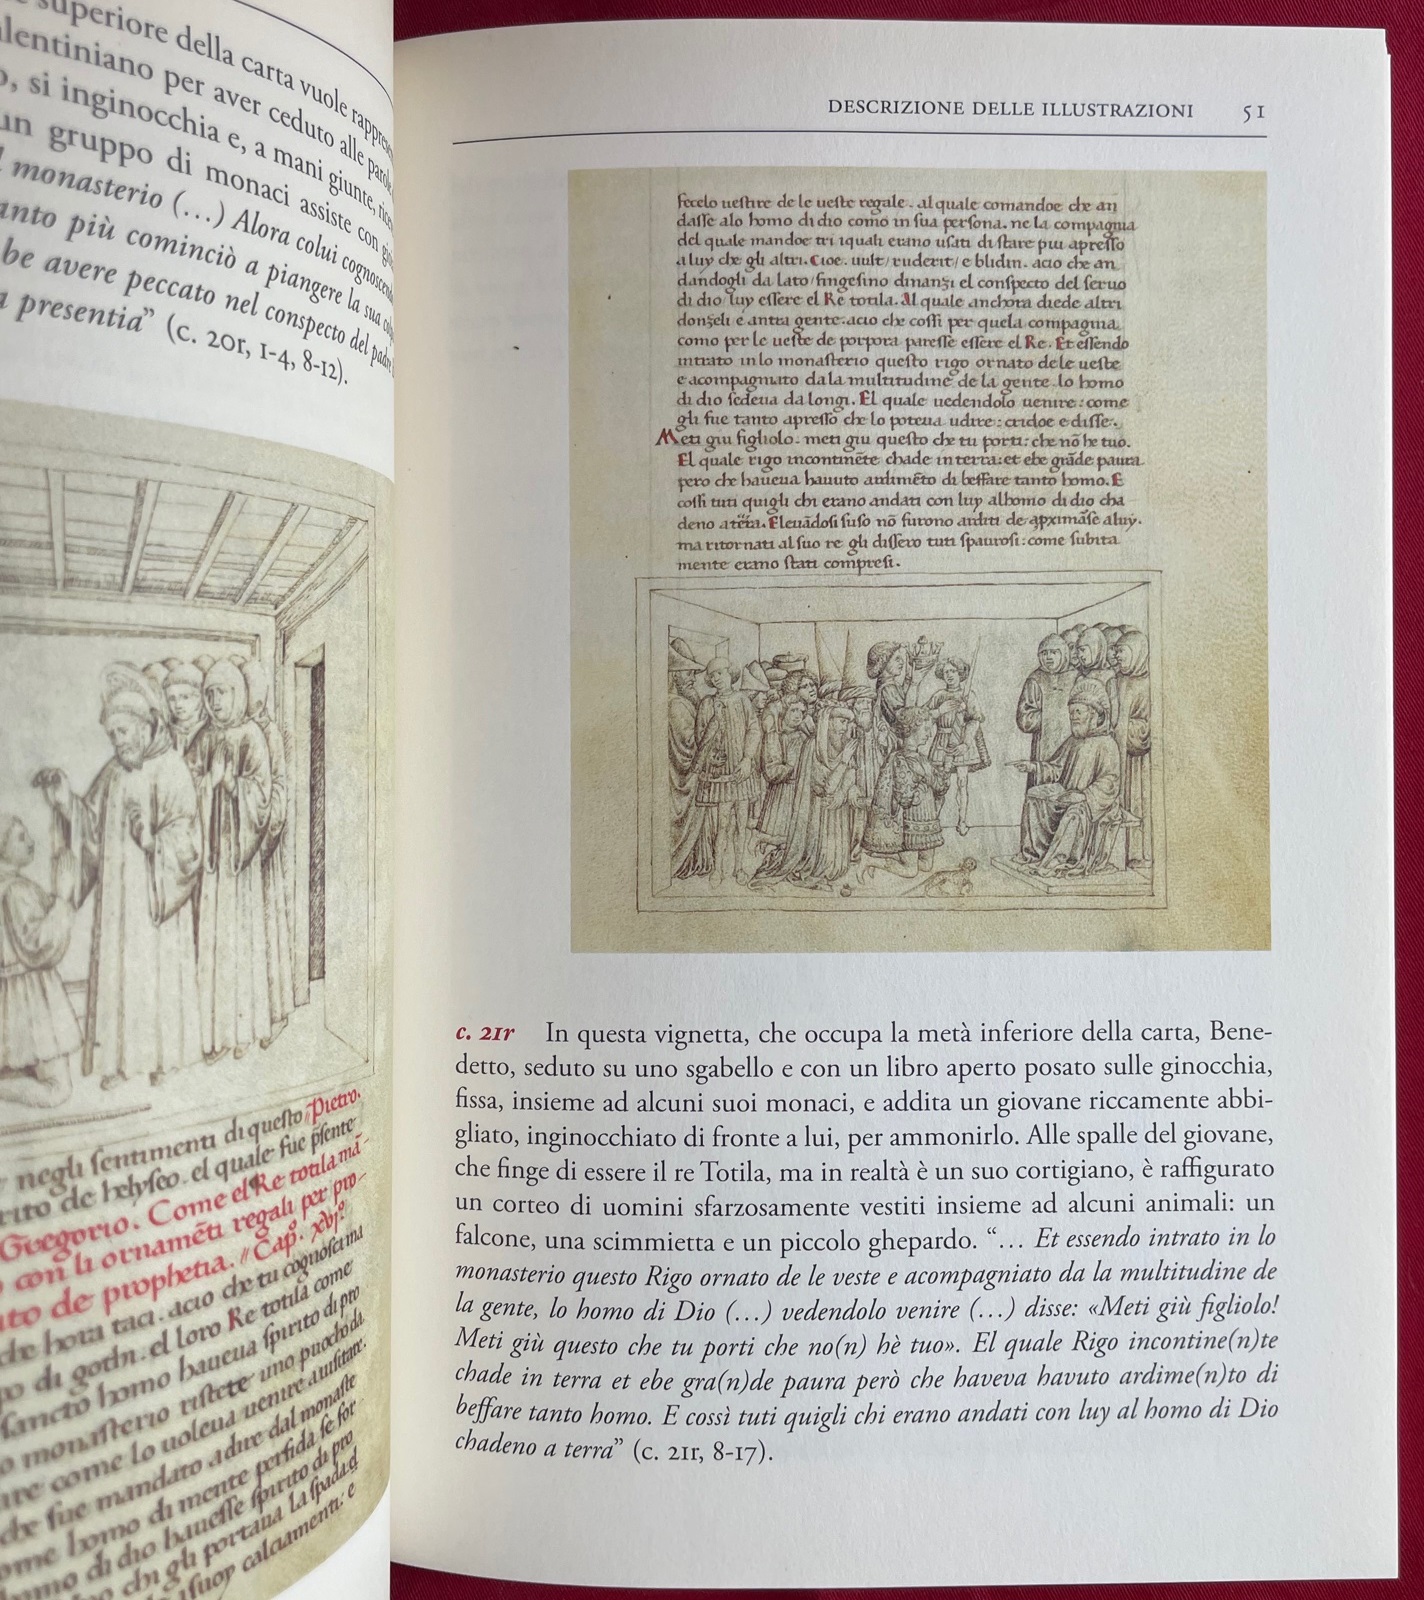 superiore della carta vuole
alentiniano per aver ceduto alle parole
si inginocchia e, a mani giunte,
un gruppo di monaci assiste con
monasterio (…) Alora colui cognoscendo
più cominciò a piangere la sua
be avere peccato nel conspecto del padre
presentia” (c. 20r, 1-4, 8-12).
negli sentimenti di questo Pietro.
de helyseo. el quale fue psente
Gregorio. Come el Re totila mā
con li ornamēti regali per pro
de prophetia. Cap.º xvj.º
hora taci. acio che tu cognosci ma
di gothi. el loro Re totila come
sancto homo haueua spirito di pro
monasterio ristete uno pucho da
come lo uoleua uenire a uisitare.
che fue mandato a dire dal monaste
homo di mente perfida se for
di dio hauesse spirito di pro
chi gli portaua la spada. d
suoy calciamenti: e
DESCRIZIONE DELLE ILLUSTRAZIONI 51
fecelo uestire de le ueste regale. al quale comandoe che an
dasse alo homo di dio como in sua persona. ne la compagnia
del quale mandoe tri iquali erano usati di stare piu apresso
a luy che gli altri. Cioe. uult/ ruderit/ e blidin. acio che an
dandogli da lato/ fingesino dinanzi el conspecto del seruo
di dio/ luy essere el Re totila. Al quale anchora diede altri
donzeli e antra gente. acio che cossi per quela compagnia
como per le ueste de porpora paresse essere el Re. Et essendo
intrato in lo monasterio questo rigo ornato de le ueste
e acompagnato da la multitudine de la gente. lo homo
di dio sedeua da longi. El quale uedendolo uenire: come
gli fue tanto apresso che lo poteua udire: cridoe e disse.
Meti giu figliolo. meti giu questo che tu porti: che nō he tuo.
El quale rigo incontinēte chade in terra: et ebe grāde paura
pero che haueua hauuto ardimēto di beffare tanto homo. E
cossi tuti quigli chi erano andati con luy al homo di dio cha
deno a tēra. Eleuādosi suso nō furono arditi de apximāse a luy.
ma ritornati al suo re gli dissero tuti spaurosi: come subita
mente erano stati compresi.
c. 21r In questa vignetta, che occupa la metà inferiore della carta, Bene-
detto, seduto su uno sgabello e con un libro aperto posato sulle ginocchia,
fissa, insieme ad alcuni suoi monaci, e addita un giovane riccamente abbi-
gliato, inginocchiato di fronte a lui, per ammonirlo. Alle spalle del giovane,
che finge di essere il re Totila, ma in realtà è un suo cortigiano, è raffigurato
un corteo di uomini sfarzosamente vestiti insieme ad alcuni animali: un
falcone, una scimmietta e un piccolo ghepardo. “… Et essendo intrato in lo
monasterio questo Rigo ornato de le veste e acompagniato da la multitudine de
la gente, lo homo di Dio (…) vedendolo venire (…) disse: «Meti giù figliolo!
Meti giù questo che tu porti che no(n) hè tuo». El quale Rigo incontine(n)te
chade in terra et ebe gra(n)de paura però che haveva havuto ardime(n)to di
beffare tanto homo. E cossì tuti quigli chi erano andati con luy al homo di Dio
chadeno a terra” (c. 21r, 8-17).